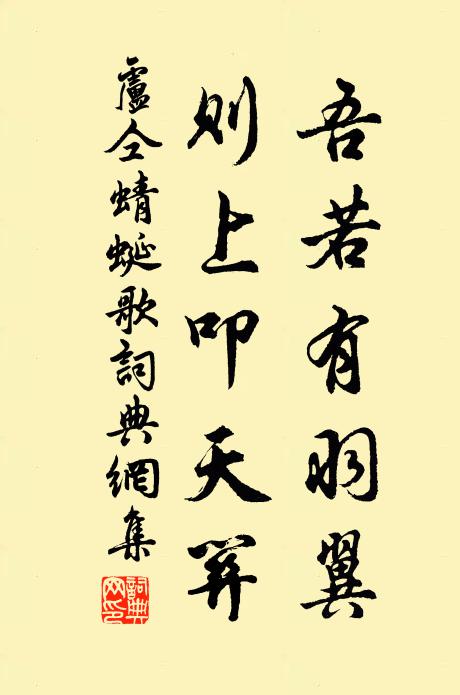 吾若有羽翼
則上叩天關
盧仝蜻蜓歌詞典網集
詞典网印